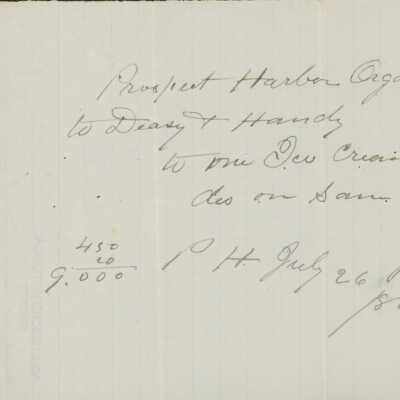 Prospect Harbor Orga
to Deasy & Handy
to one Ice Crea
do on Sam
450
20
9.000
P H. July 26
18